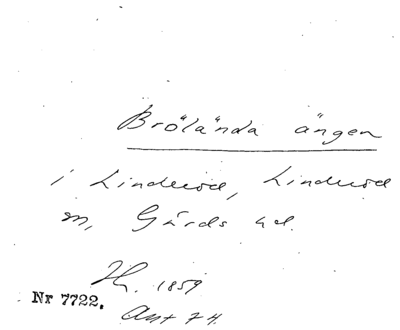 Brölända ängen
i Linderöd, Linderöd
sn, Gärds hd.
Hr. 1859
Nr 7722.
Ant 74.